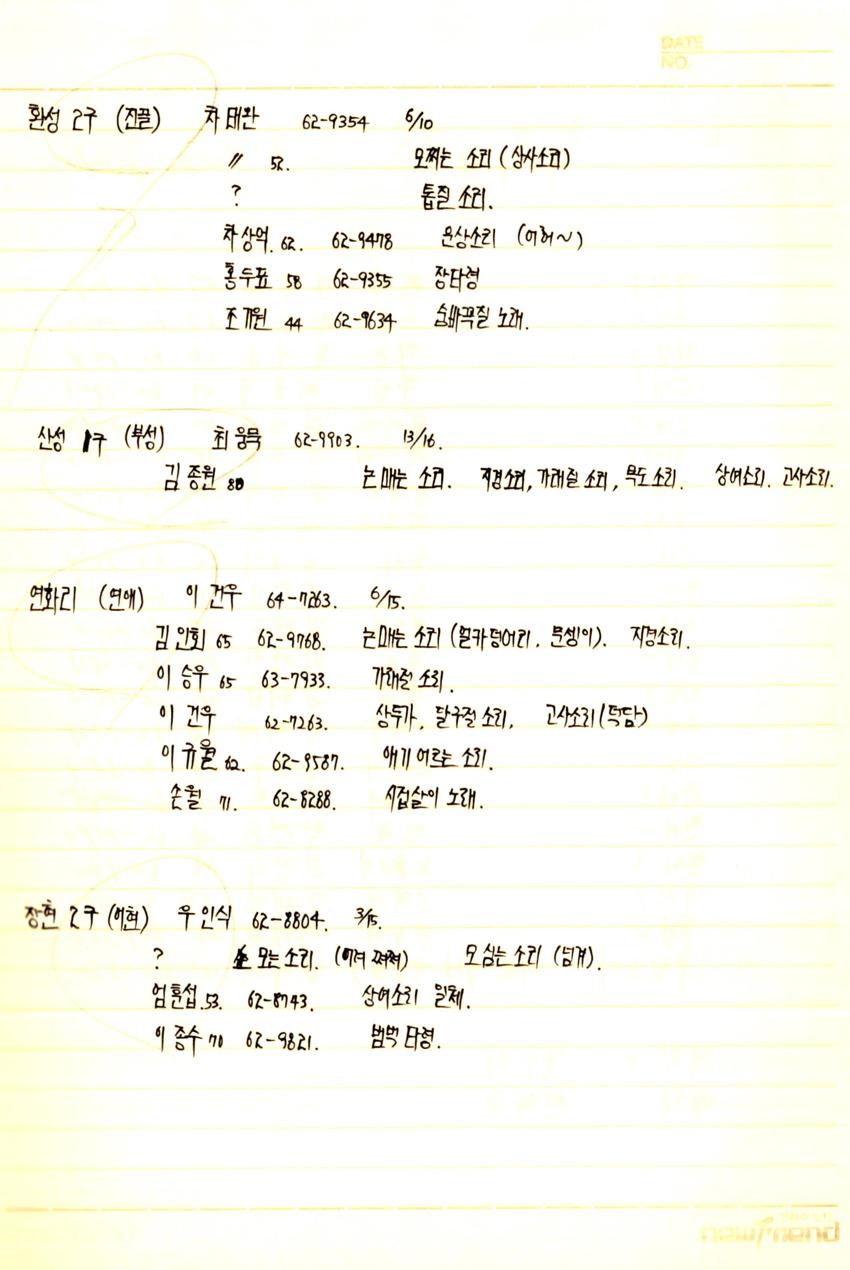 DATE
NO.
환성 2구 (진골) 차태완 62-9354 6/10
〃 52. 모찌는 소리 (상사소리)
? 톱질 소리.
차상억. 62. 62-9478 운상소리 (어허~)
홍두표 58 62-9355 장타령
조기원 44 62-9634 숨바꼭질 노래.
산성 1구 (부성) 최웅묵 62-9903. 13/16.
김종원 80 논매는 소리. 지경소리, 가래질 소리, 목도소리. 상여소리. 고사소리.
연화리 (연애) 이건우 64-7263. 6/15.
김인회 65 62-9768. 논매는 소리 (얼카덩어리, 문셍이). 지경소리.
이승우 65 63-7933. 가래질 소리.
이건우 62-7263. 상두가, 달구질 소리, 고사소리 (덕담)
이규월 62. 62-9587. 애기 어르는 소리.
손월 71. 62-8288. 시집살이 노래.
장현 2구 (어현) 우인식 62-8804. 3/15.
? 모는 소리. (이려 쩌쩌) 모심는 소리 (넘겨).
엄훈섭. 53. 62-8743. 상여소리 일체.
이종수 70 62-9821. 범벅타령.
newfriend